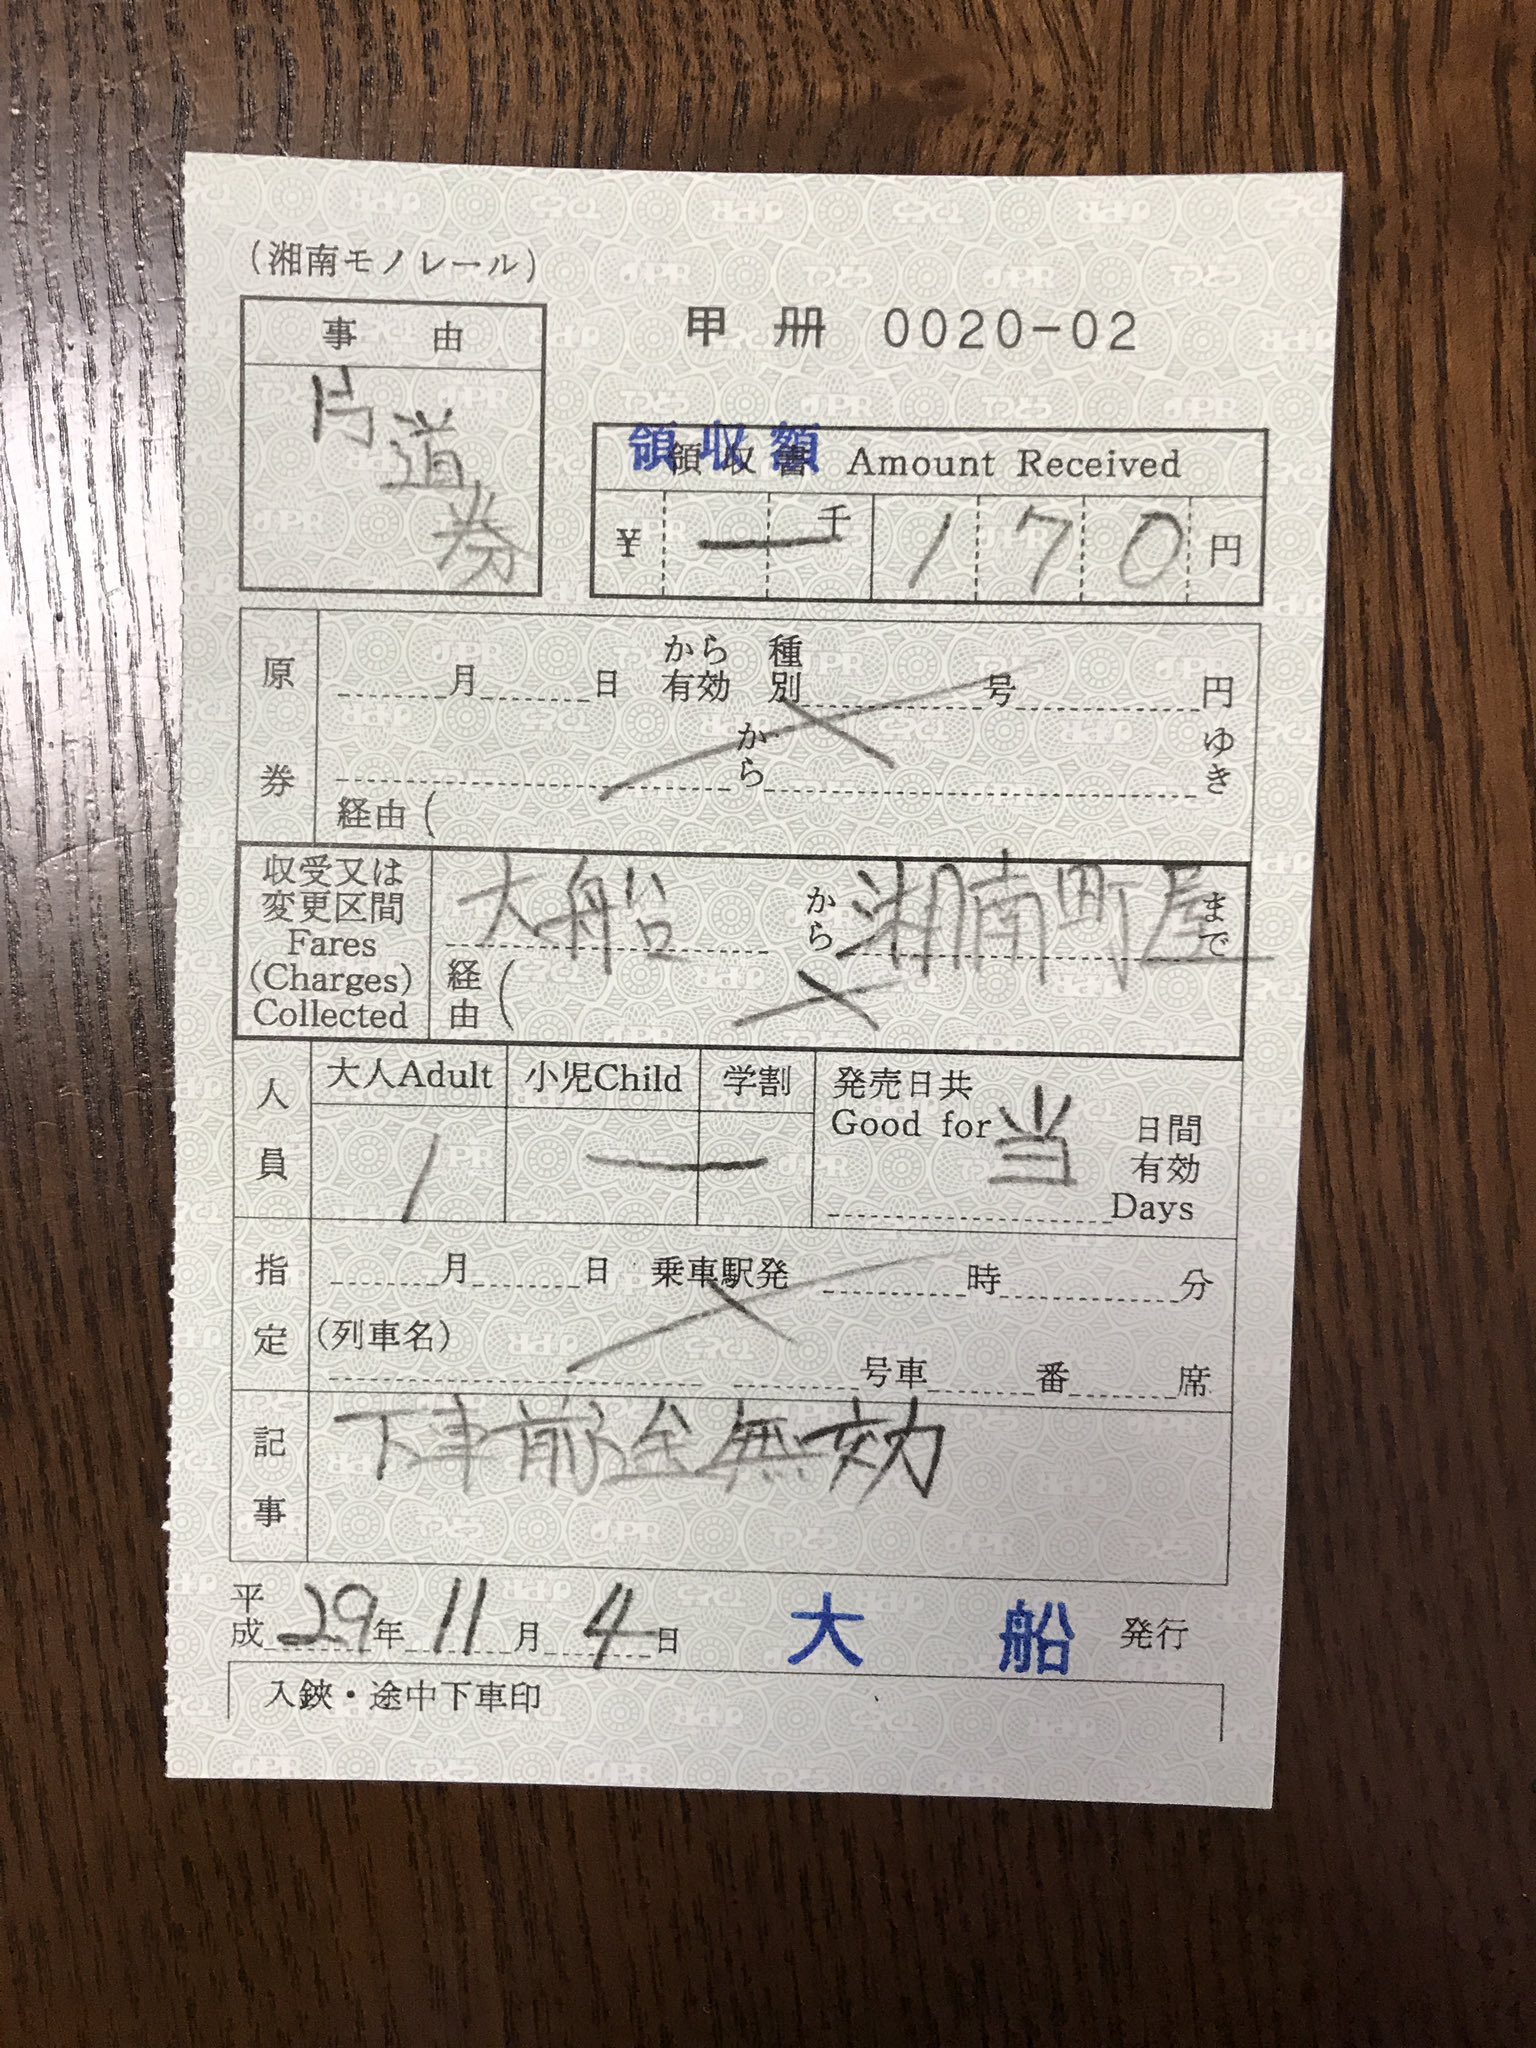 (湘南モノレール)
事由
片道券
甲 冊 0020-02
領収額
領収書 Amount Received
¥ 千 170円
原券
月 日 から有効 種別 号 円
から ゆき
経由(
収受又は変更区間 Fares (Charges) Collected
大船 から 湘南町屋 まで
経由(
人員
大人Adult 小児Child 学割
1
発売日共 Good for 当 日間有効 Days
指定
月 日 乗車駅発 時 分
(列車名)
号車 番 席
記事
下車前途無効
平成29年11月4日 大船 発行
入鋏・途中下車印